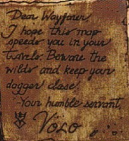 Dear Wayfarer,
I hope this map
speeds you in your
travels. Beware the
wilds and keep your
dagger close!
-Your humble servant,
VOLO